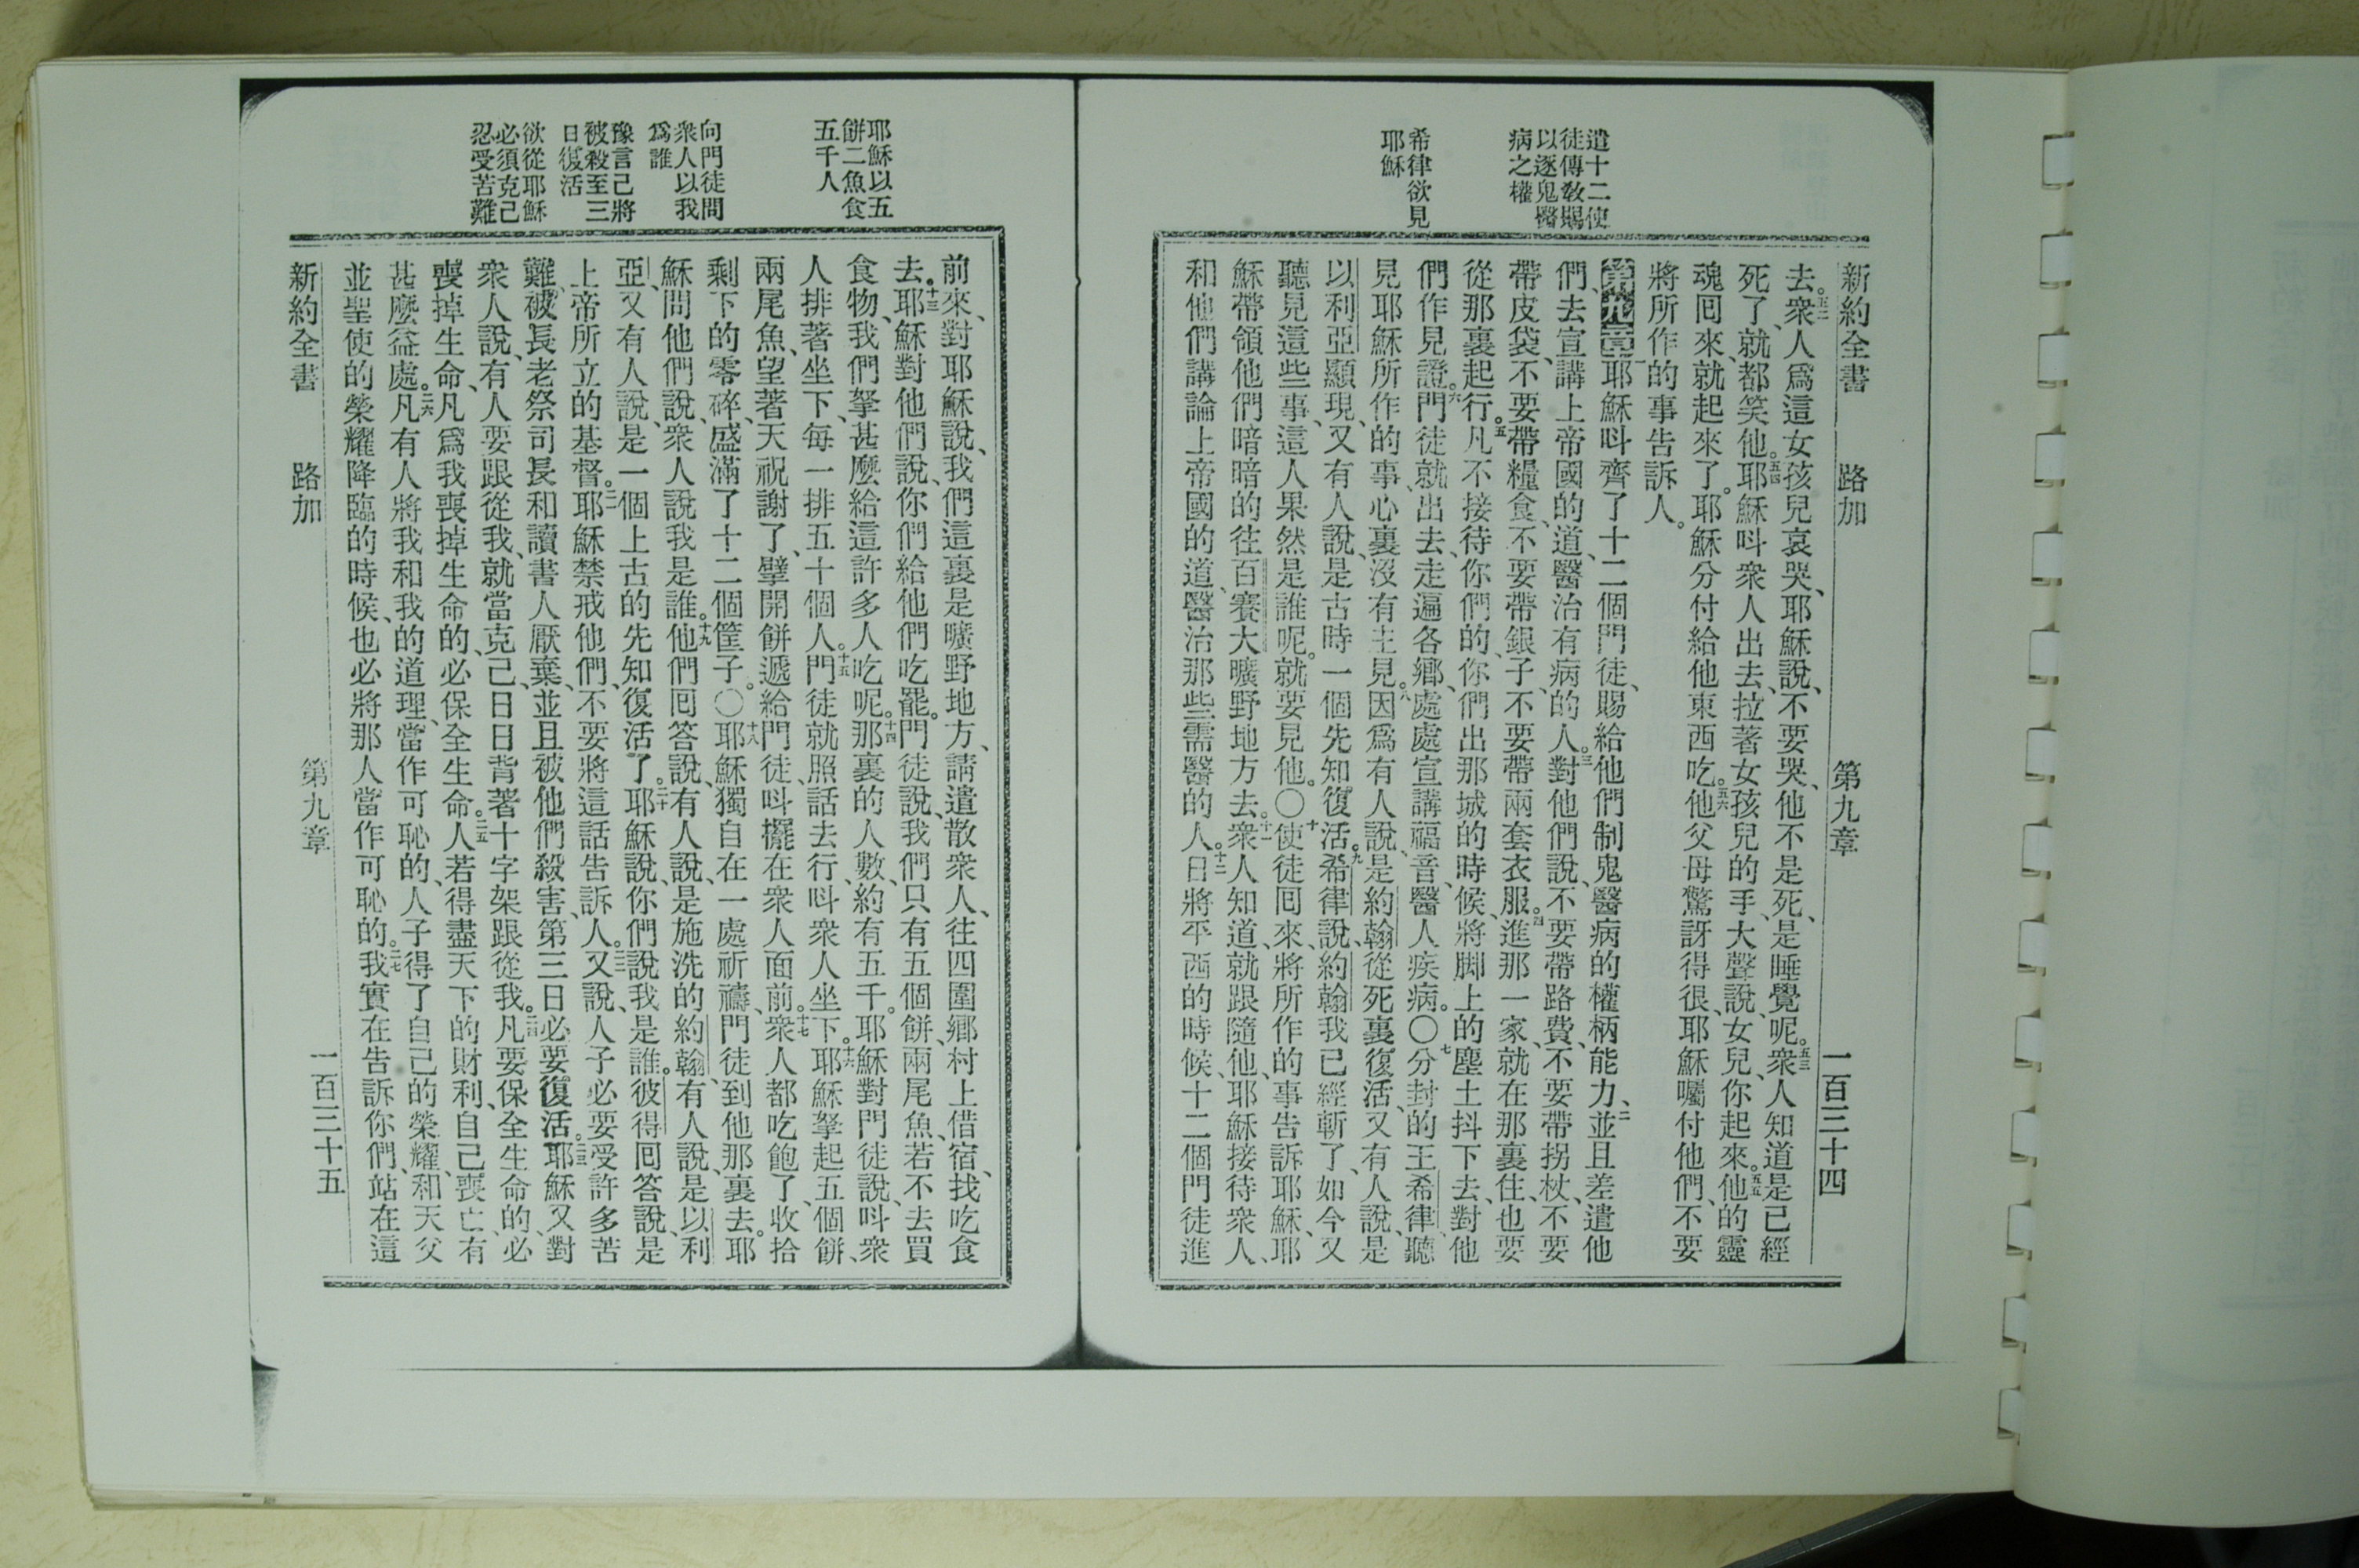 遣十二使
徒傳敎賜
以逐鬼醫
病之權
希律欲見
耶穌
新約全書 路加 第九章 一百三十四
去。五二衆人爲這女孩兒哀哭、耶穌說、不要哭、他不是死、是睡覺呢。五三衆人知道是已經
死了、就都笑他。五四耶穌呌衆人出去、拉著女孩兒的手、大聲說、女兒、你起來。五五他的靈
魂囘來、就起來了。耶穌分付給他東西吃。五六他父母驚訝得很、耶穌囑付他們、不要
將所作的事告訴人。
第九章一耶穌呌齊了十二個門徒、賜給他們制鬼醫病的權柄能力、二並且差遣他
們、去宣講上帝國的道、醫治有病的人。三對他們說、不要帶路費、不要帶拐杖、不要
帶皮袋、不要帶糧食、不要帶銀子、不要帶兩套衣服。四進那一家、就在那裏住、也要
從那裏起行。五凡不接待你們的、你們出那城的時候、將脚上的塵土抖下去、對他
們作見證。六門徒就出去、走遍各鄉、處處宣講福音、醫人疾病。〇七分封的王希律、聽
見耶穌所作的事、心裏沒有主見。八因爲有人說、是約翰從死裏復活、又有人說、是
以利亞顯現、又有人說、是古時一個先知復活。九希律說、約翰我已經斬了、如今又
聽見這些事、這人果然是誰呢。就要見他。〇十使徒囘來、將所作的事告訴耶穌、耶
穌帶領他們暗暗的往百賽大曠野地方去。十一衆人知道、就跟隨他、耶穌接待衆人、
和他們講論上帝國的道、醫治那些需醫的人。十二日將平西的時候、十二個門徒進
耶穌以五
餅二魚食
五千人
向門徒問
衆人以我
爲誰
豫言己將
被殺至三
日復活
欲從耶穌
必須克己
忍受苦難
前來、對耶穌說、我們這裏是曠野地方、請遣散衆人、往四圍鄉村上借宿、找吃食
去。十三耶穌對他們說、你們給他們吃罷。門徒說、我們只有五個餅、兩尾魚、若不去買
食物、我們拏甚麼給這許多人吃呢。十四那裏的人數、約有五千。耶穌對門徒說、呌衆
人排著坐下、每一排五十個人。十五門徒就照話去行、呌衆人坐下。十六耶穌拏起五個餅、
兩尾魚、望著天祝謝了、擘開餅遞給門徒、呌擺在衆人面前。十七衆人都吃飽了、收拾
剩下的零碎、盛滿了十二個筐子。〇十八耶穌獨自在一處祈禱、門徒到他那裏去。耶
穌問他們說、衆人說我是誰。十九他們囘答說、有人說、是施洗的約翰、有人說、是以利
亞、又有人說、是一個上古的先知復活了。二十耶穌說、你們說我是誰。彼得囘答說、是
上帝所立的基督。二一耶穌禁戒他們、不要將這話告訴人。二二又說、人子必要受許多苦
難、被長老祭司長和讀書人厭棄、並且被他們殺害、第三日必要復活。二三耶穌又對
衆人說、有人要跟從我、就當克己、日日背著十字架跟從我。二四凡要保全生命的、必
喪掉生命、凡爲我喪掉生命的、必保全生命。二五人若得盡天下的財利、自己喪亡、有
甚麼益處。二六凡有人將我和我的道理、當作可恥的、人子得了自己的榮耀、和天父
並聖使的榮耀降臨的時候、也必將那人當作可恥的。二七我實在告訴你們、站在這
新約全書 路加 第九章 一百三十五